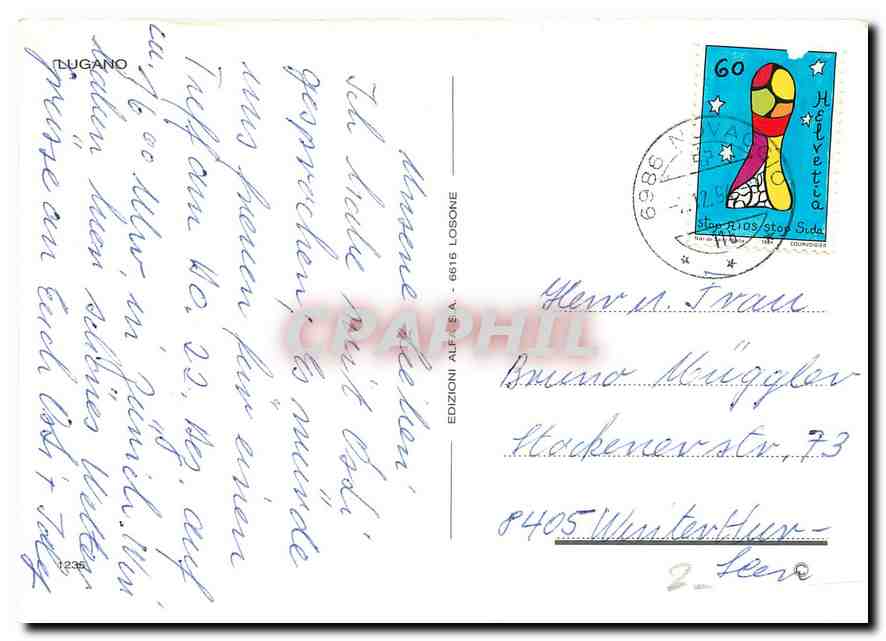 LUGANO
Unsere Lieben
Ich habe mit Osdi
gesprochen, Es würde
uns freuen für einen
Treff am Do. 22. Dez. auf
ca. 16.00 Uhr, in Zürich. Wir
haben hier schönes Wetter
grüsse an Euch
1235
EDIZIONI ALFA S.A. - 6616 LOSONE
CPAPHIL
60
Helvetia
Stop AIDS Stop Sida
Niki de Saint Phalle 1994 COURVOISIER
6986 NOVAGGIO
Herr u. Frau
Bruno Müggler
Stockenerstr, 73
8405 Winterthur-
Seen
©
2.-